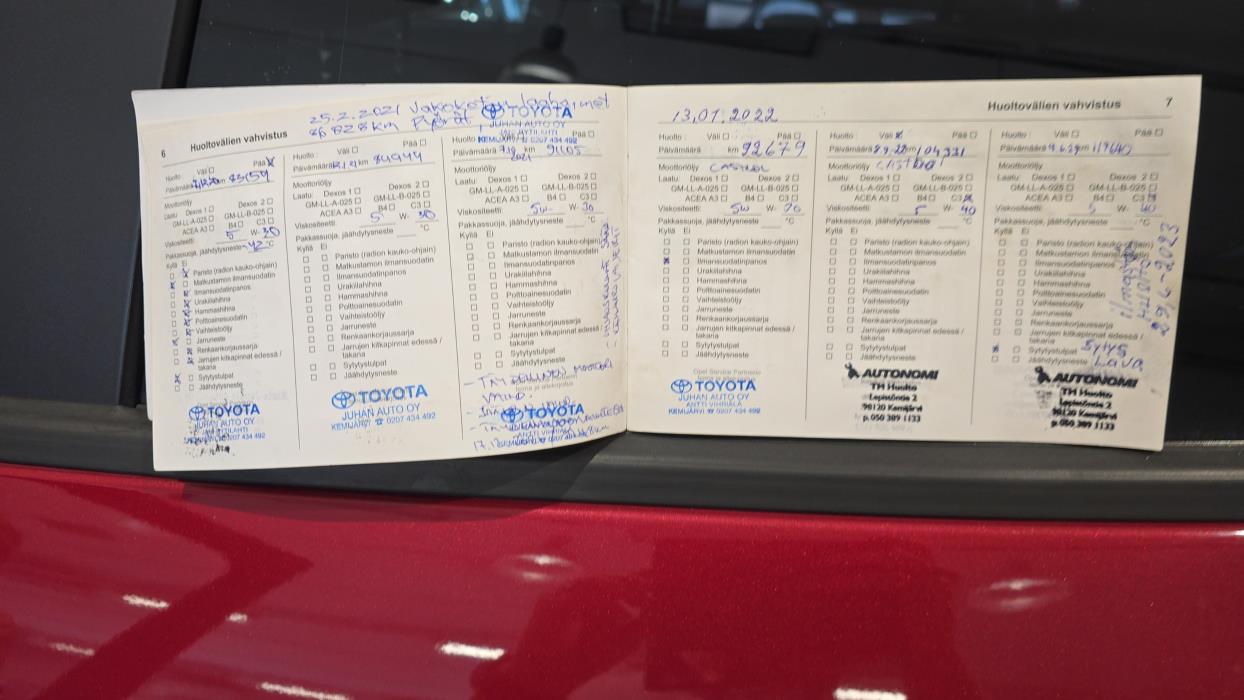 25.2.2021
86828km
6 Huoltovälien vahvistus
Huolto: Väli Pää
Päivämäärä km 83159
Moottoriöljy
Laatu: Dexos 1 Dexos 2
GM-LL-A-025 GM-LL-B-025
ACEA A3 B4 C3
Viskositeetti 5 W- 30
Pakkassuoja, jäähdytysneste -42 °C
Kyllä Ei
Paristo (radion kauko-ohjain)
Matkustamon ilmansuodatin
Ilmansuodatinpanos
Urakiilahihna
Hammashihna
Polttoainesuodatin
Vaihteistoöljy
Jarruneste
Renkaankorjaussarja
Jarrujen kitkapinnat edessä /
takana
Sytytystulpat
Jäähdytysneste
TOYOTA
JUHAN AUTO OY
0207 434 492
Huolto: Väli Pää
Päivämäärä km 84944
Moottoriöljy
Laatu: Dexos 1 Dexos 2
GM-LL-A-025 GM-LL-B-025
ACEA A3 B4 C3
Viskositeetti 5 W- 30
Pakkassuoja, jäähdytysneste °C
Kyllä Ei
Paristo (radion kauko-ohjain)
Matkustamon ilmansuodatin
Ilmansuodatinpanos
Urakiilahihna
Hammashihna
Polttoainesuodatin
Vaihteistoöljy
Jarruneste
Renkaankorjaussarja
Jarrujen kitkapinnat edessä /
takana
Sytytystulpat
Jäähdytysneste
TOYOTA
JUHAN AUTO OY
KEMIJÄRVI ☎ 0207 434 492
TOYOTA
JUHAN AUTO OY
0207 434 492
Huolto Pää
Päivämäärä 2021 km
Moottoriöljy
Laatu: Dexos 1 Dexos 2
GM-LL-A-025 GM-LL-B-025
ACEA A3 B4 C3
Viskositeetti 5w- W- 30
Pakkassuoja, jäähdytysneste °C
Kyllä Ei
Paristo (radion kauko-ohjain)
Matkustamon ilmansuodatin
Ilmansuodatinpanos
Urakiilahihna
Hammashihna
Polttoainesuodatin
Vaihteistoöljy
Jarruneste
Renkaankorjaussarja
Jarrujen kitkapinnat edessä /
takana
Sytytystulpat
Jäähdytysneste
TOYOTA
Huoltovälien vahvistus 7
13,01.2022
Huolto: Väli Pää
Päivämäärä km 92679
Moottoriöljy CASTROL
Laatu: Dexos 1 Dexos 2
GM-LL-A-025 GM-LL-B-025
ACEA A3 B4 C3
Viskositeetti 5w W- 30
Pakkassuoja, jäähdytysneste °C
Kyllä Ei
Paristo (radion kauko-ohjain)
Matkustamon ilmansuodatin
Ilmansuodatinpanos
Urakiilahihna
Hammashihna
Polttoainesuodatin
Vaihteistoöljy
Jarruneste
Renkaankorjaussarja
Jarrujen kitkapinnat edessä /
takana
Sytytystulpat
Jäähdytysneste
TOYOTA
JUHAN AUTO OY
ANTTI VIHRIÄLÄ
KEMIJÄRVI ☎ 0207 434 492
Huolto: Väli Pää
Päivämäärä km 104331
Moottoriöljy CASTROL
Laatu: Dexos 1 Dexos 2
GM-LL-A-025 GM-LL-B-025
ACEA A3 B4 C3
Viskositeetti 5 W- 40
Pakkassuoja, jäähdytysneste °C
Kyllä Ei
Paristo (radion kauko-ohjain)
Matkustamon ilmansuodatin
Ilmansuodatinpanos
Urakiilahihna
Hammashihna
Polttoainesuodatin
Vaihteistoöljy
Jarruneste
Renkaankorjaussarja
Jarrujen kitkapinnat edessä /
takana
Sytytystulpat
Jäähdytysneste
AUTONOMI
TM Huolto
Lepistöntie 2
98120 Kemijärvi
p. 050 389 1133
Huolto: Väli Pää
Päivämäärä km 117640
Moottoriöljy
Laatu: Dexos 1 Dexos 2
GM-LL-A-025 GM-LL-B-025
ACEA A3 B4 C3
Viskositeetti 5 W- 40
Pakkassuoja, jäähdytysneste °C
Kyllä Ei
Paristo (radion
Matkustamon
Ilmansuodatinpanos
Urakiilahihna
Hammashihna
Polttoainesuodatin
Vaihteistoöljy
Jarruneste
Renkaankorjaussarja
Jarrujen kitkapinnat
takana
Sytytystulpat
Jäähdytysneste
AUTONOMI
TM Huolto
Lepistöntie 2
98120 Kemijärvi
p. 050 389 1133